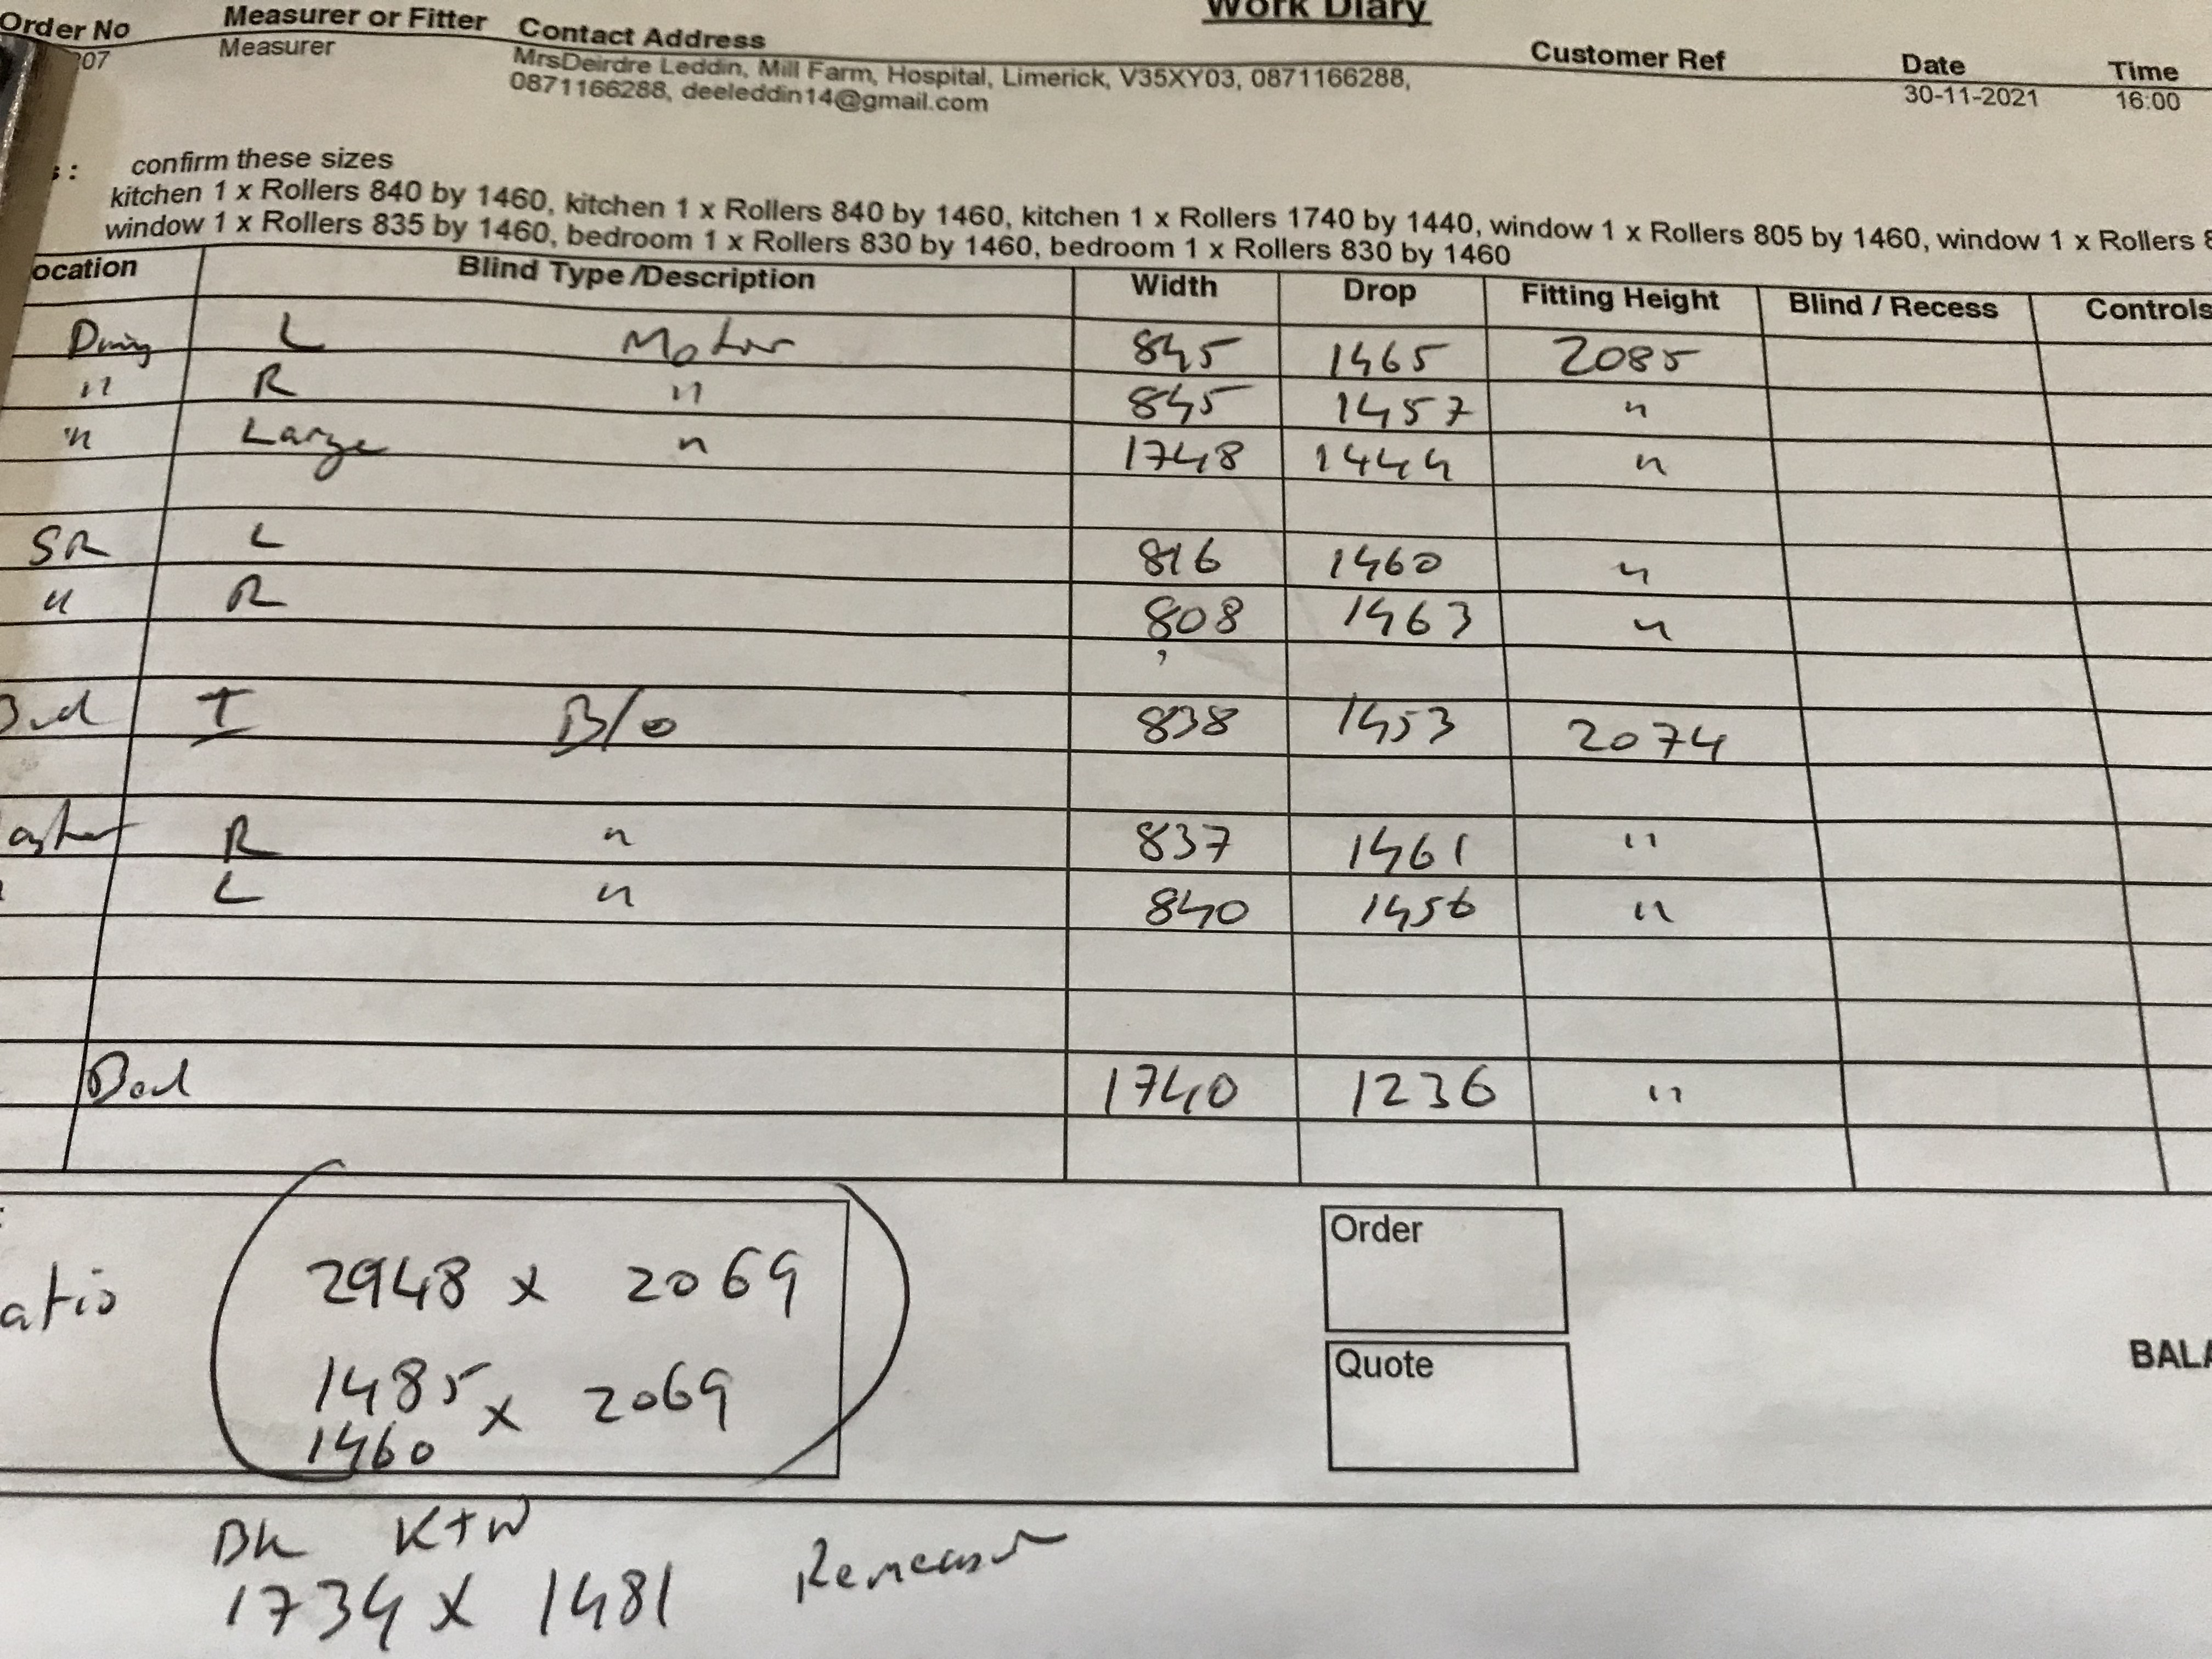 Work Diary
Order No Measurer or Fitter Contact Address Customer Ref Date Time
207 Measurer MrsDeirdre Leddin, Mill Farm, Hospital, Limerick, V35XY03, 0871166288, 30-11-2021 16:00
0871166288, deeleddin14@gmail.com
: confirm these sizes
kitchen 1 x Rollers 840 by 1460, kitchen 1 x Rollers 840 by 1460, kitchen 1 x Rollers 1740 by 1440, window 1 x Rollers 805 by 1460, window 1 x Rollers 8
window 1 x Rollers 835 by 1460, bedroom 1 x Rollers 830 by 1460, bedroom 1 x Rollers 830 by 1460
ocation Blind Type /Description Width Drop Fitting Height Blind / Recess Controls
L Motor 845 1465 2085
" R " 845 1457 "
" Large " 1748 1444 "
SR L 816 1460 "
" R 808 1463 "
I B/o 838 1453 2074
R " 837 1461 "
L " 840 1456 "
1740 1236 "
atio 2948 x 2069
1485 x 2069
1460
Order
Quote
BALA
K+W
1734 x 1481 Remeasure